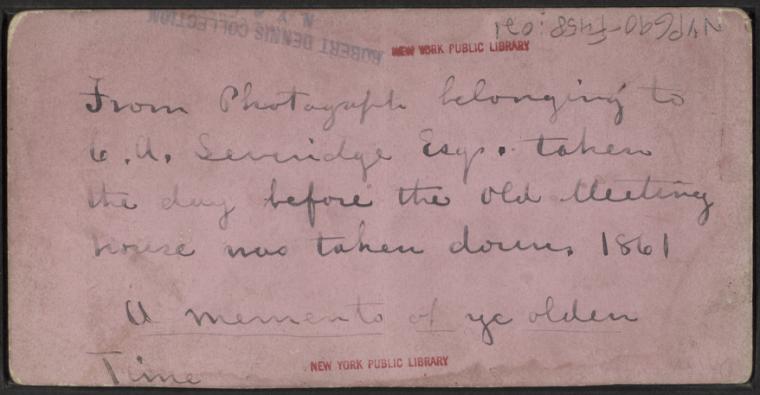 NYPG90-F458:021
ROBERT DENNIS COLLECTION
N. Y.
NEW YORK PUBLIC LIBRARY
From Photagaph belonging to
C. A. Esqr. taken
the day before the old Meeting
house was taken down, 1861
A memento of ye olden
Time
NEW YORK PUBLIC LIBRARY